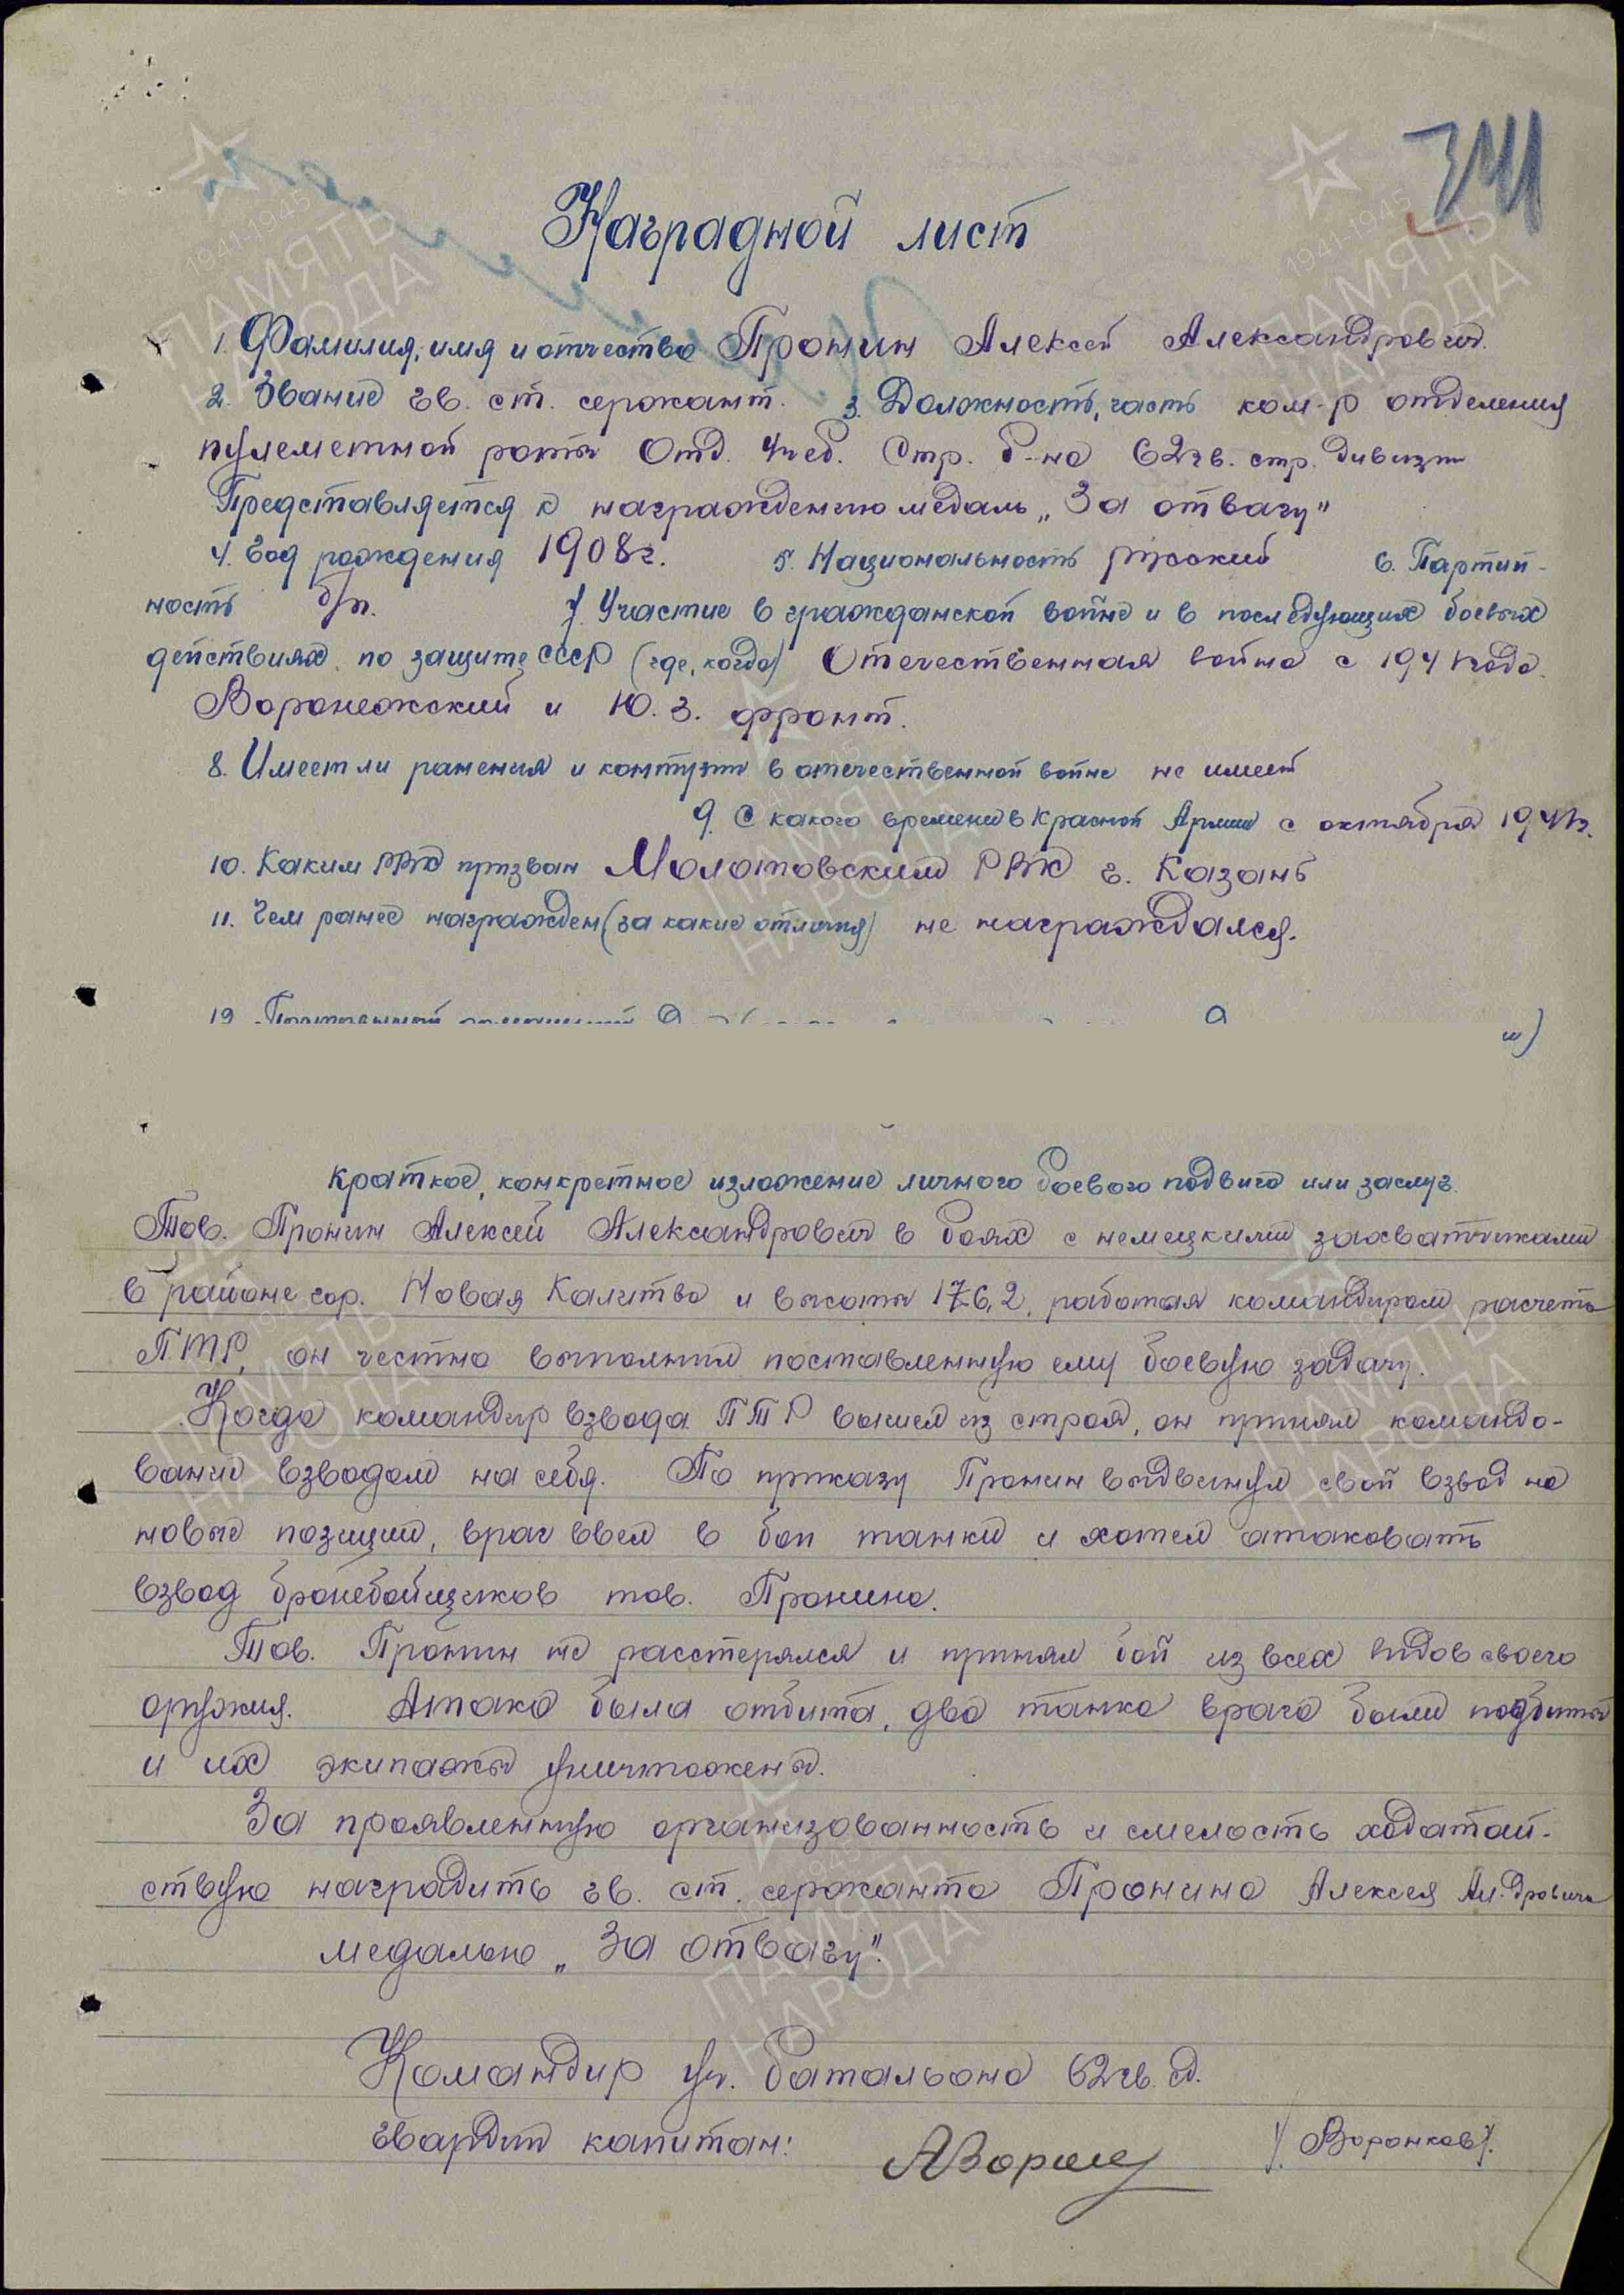 341
Наградной лист
1. Фамилия, имя и отчество Пронин Алексей Александрович.
2. Звание гв. ст. сержант. 3. Должность, часть ком-р отделения
пулеметной роты Отд. Учеб. Стр. б-на 62 гв. стр. дивизии
Представляется к награждению медаль „За отвагу"
4. Год рождения 1908 г. 5. Национальность русский 6. Партий-
ность б/п. 7. Участие в гражданской войне и в последующих боевых
действиях по защите СССР (где, когда) Отечественная война с 1941 года.
Воронежский и Ю. З. фронт.
8. Имеет ли ранения и контузии в отечественной войне не имеет
9. С какого времени в Красной Армии с октября 1941 г.
10. Каким РВК призван Молотовским РВК г. Казань
11. Чем ранее награжден (за какие отличия) не награждался.
12.
Краткое, конкретное изложение личного боевого подвига или заслуг.
Тов. Пронин Алексей Александрович в боях с немецкими захватчиками
в районе гор. Новая Калитва и высоты 176,2, работая командиром расчета
ПТР, он честно выполнил поставленную ему боевую задачу.
Когда командир взвода ПТР вышел из строя, он принял командо-
вание взводом на себя. По приказу Пронин выдвинул свой взвод на
новые позиции, враг ввел в бой танки и хотел атаковать
взвод бронебойщиков тов. Пронина.
Тов. Пронин не расстерялся и принял бой из всех видов своего
оружия. Атака была отбита, два танка врага были подбиты
и их экипажы уничтожены.
За проявленную организованность и смелость ходатай-
ствую наградить гв. ст. сержанта Пронина Алексея Ал-дровича
медалью „За отвагу".
Командир уч. батальона 62 гв. сд.
гвардии капитан: /Воронков/.
ПАМЯТЬ НАРОДА
1941-1945